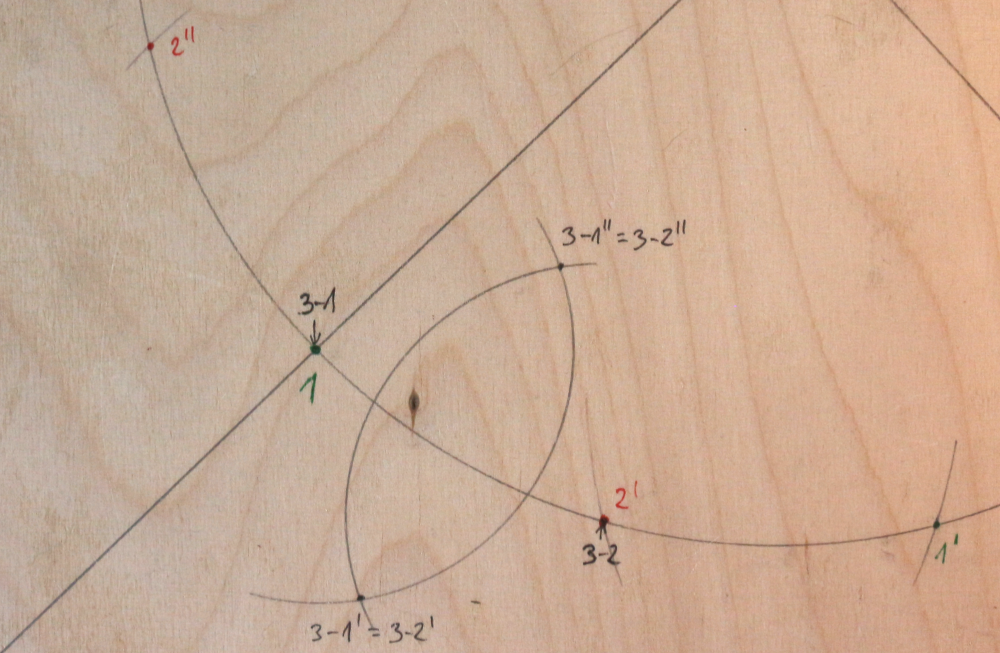 2''
3-1''=3-2''
3-1
1
2'
3-2
1'
3-1'=3-2'